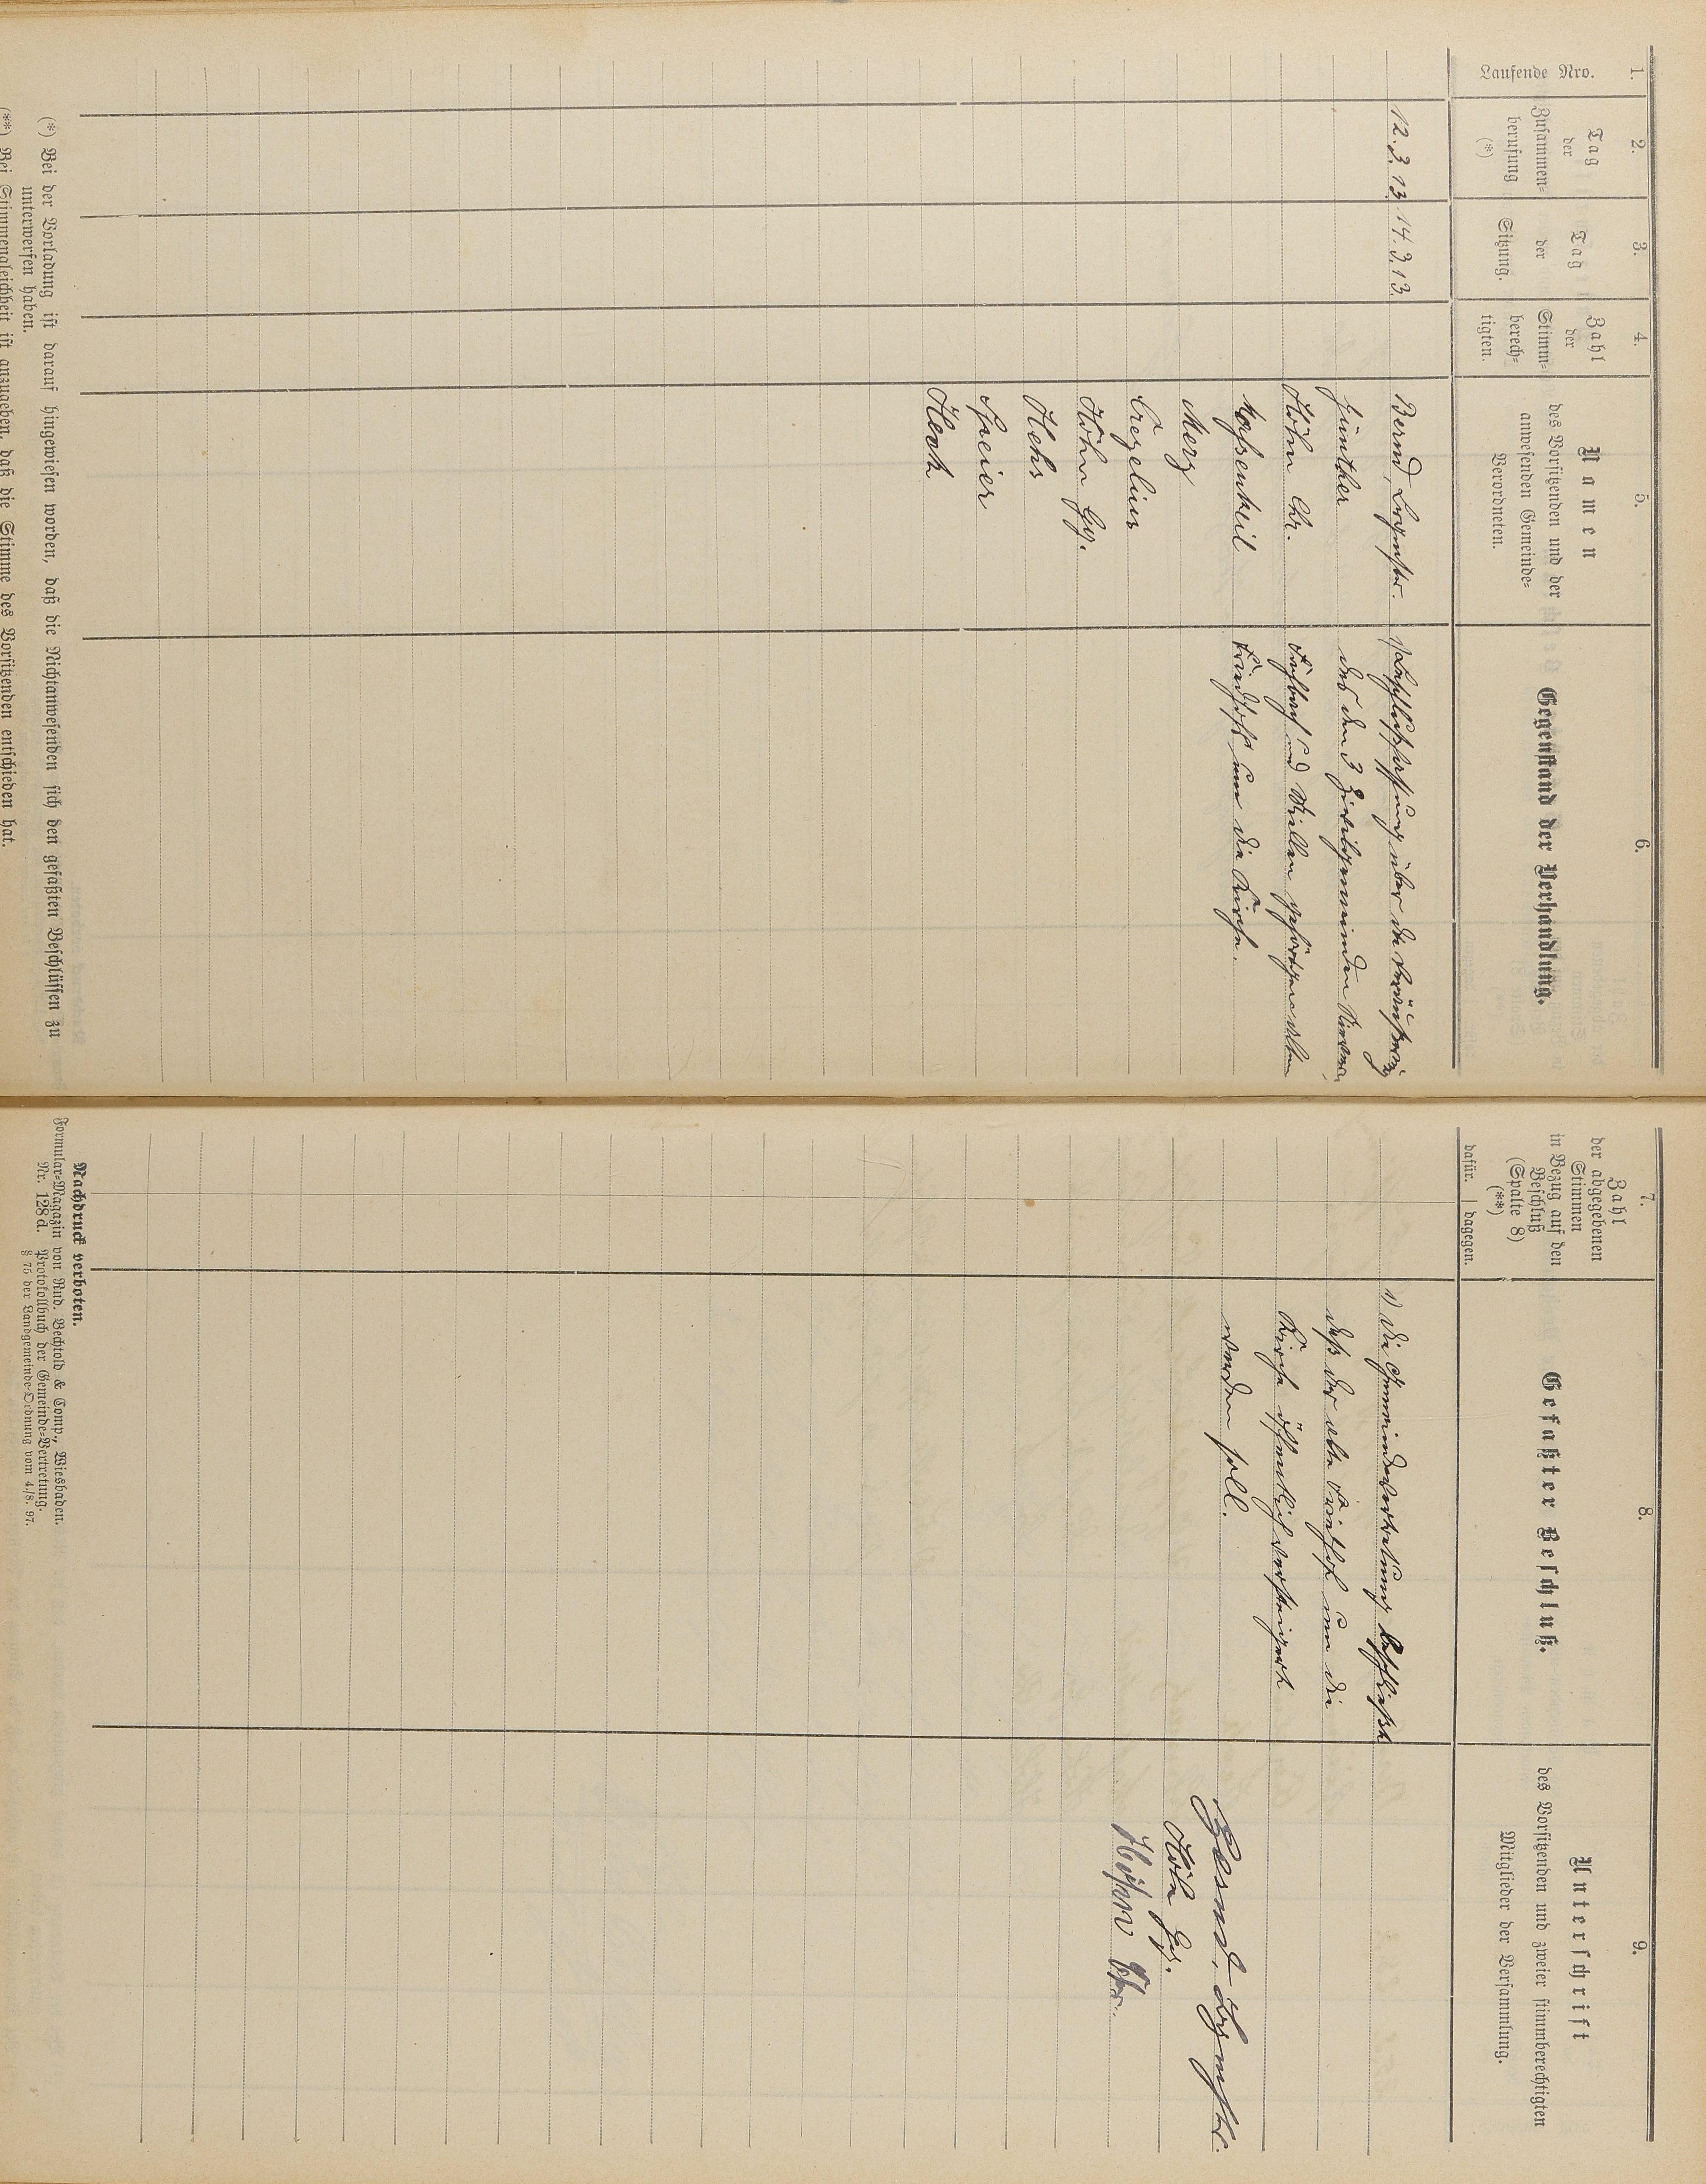 1.
Laufende Nro.
2.
Tag
der
Zusammen=
berufung
(*)
3.
Tag
der
Sitzung.
4.
Zahl
der
Stimm=
berech=
tigten.
5.
Namen
des Vorsitzenden und der
anwesenden Gemeinde=
Verordneten.
6.
Gegenstand der Verhandlung.
12.3.13. 14.3.13.
Bernd, Bürgmstr.
Günther
Höhn Chr.
Massenkeil
Merz
Crezelius
Höhn Gg.
Hehs
Speier
Heck
1) Beschlußfassung über die
des den 3 Zivilgemeinden
und gehörigen alten
Friedhofs um die Kirche.
(*) Bei der Vorladung ist darauf hingewiesen worden, daß die Nichtanwesenden sich den gefaßten Beschlüssen zu
unterwerfen haben.
(**) Bei Stimmengleichheit ist anzugeben, daß die Stimme des Vorsitzenden entschieden hat.
7.
Zahl
der abgegebenen
Stimmen
in Bezug auf den
Beschluß
(Spalte 8)
(**)
dafür. | dagegen.
8.
Gefaßter Beschluß.
9.
Unterschrift
des Vorsitzenden und zweier stimmberechtigten
Mitglieder der Versammlung.
1) Die Gemeindevertretung beschließt
daß der alte Friedhof um die
Kirche öffentlich versteigert
werden soll.
Bernd, Bürgmstr.
Höhn Gg.
Höhn Chr.
Nachdruck verboten.
Formular=Magazin von Rud. Bechtold & Comp., Wiesbaden.
Nr. 128d. Protokollbuch der Gemeinde=Vertretung.
§ 75 der Landgemeinde=Ordnung vom 4./8. 97.